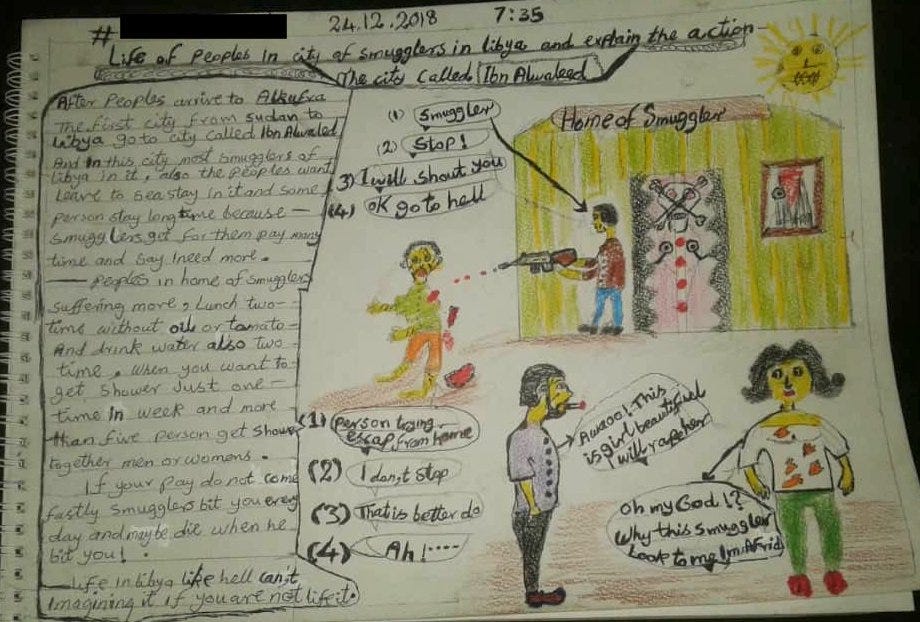 24.12.2018 7:35
#
Life of Peoples In city of smugglers in libya and explain the action
The city called Ibn Alwaleed
After Peoples arrive to Alkufra
The first city from sudan to
libya go to city called Ibn Alwaled
And in this city most smugglers of
libya in it, also the peoples want
leave to sea stay in it and some
person stay long time because —
smugglers get for them pay many
time and say I need more.
— peoples in home of smugglers
suffering more, Lunch two-
time without oil or tomato-
And drink water also two-
time. when you want to-
get shower Just one-
time In week and more
than five person get shower
together men or womens.
If your pay do not come
fastly smugglers bit you every
day and maybe die when he
bit you!.
— Life in libya like hell can't
imagining it if you are not life it.
(1) Smuggler
(2) Stop!
(3) I will shout you
(4) ok go to hell
Home of Smuggler
(1) person trying
escap from home
(2) I don,t stop
(3) That is better do
(4) Ah!....
Awaoo!. This
is girl beautiful
I will rape her
oh my God!?
Why this smuggler
Look to me I,m Afrid